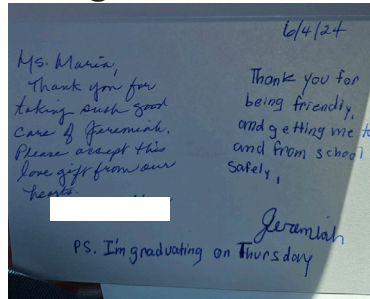 6/4/24
Ms. Maria,
Thank you for
taking such good
care of Jeremiah.
Please accept this
love gift from our
hearts.
Thank you for
being friendly,
and getting me to
and from school
safely,
Jeramiah
PS. I'm graduating on Thursday